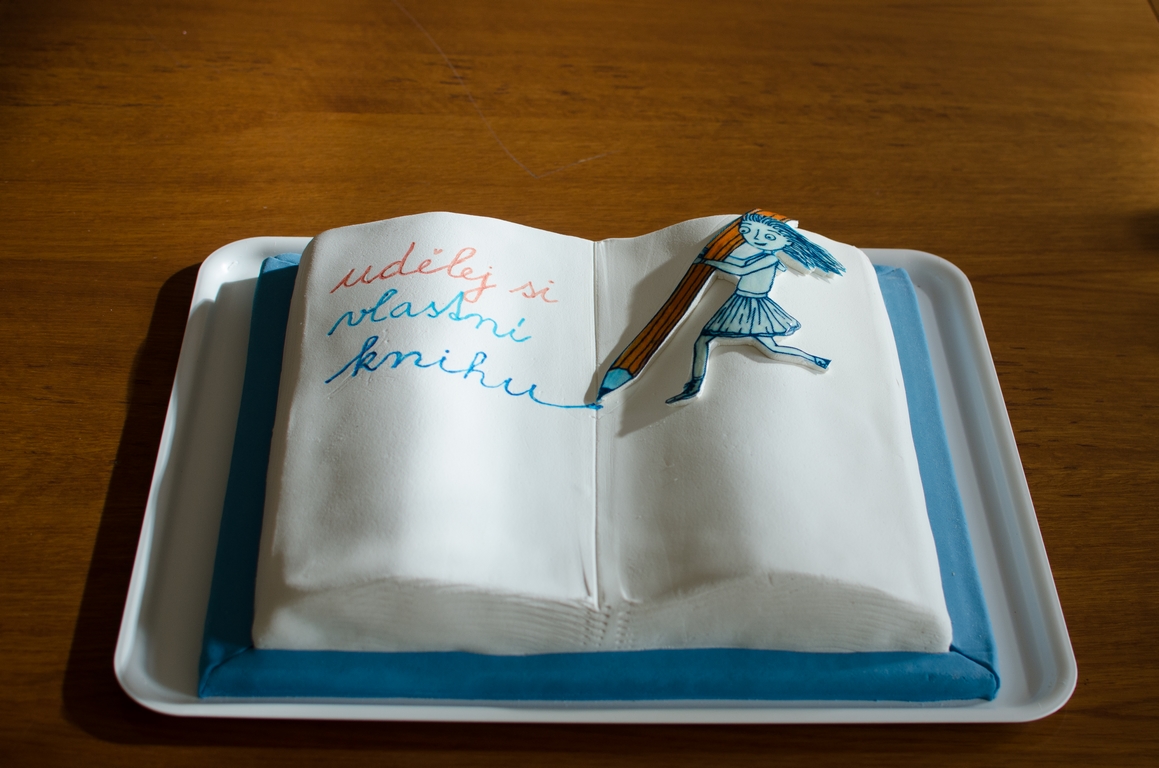 udělej si
vlastní
knihu